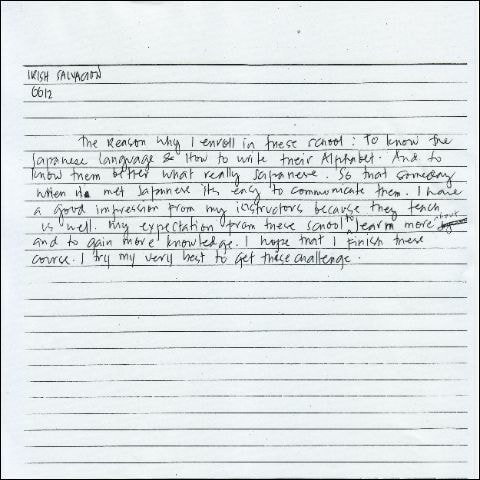 IRISH SALVACION
CG12
The Reason why I enroll in these school : To know the
Japanese Language & How to write their Alphabet. And to
know them better what really Japannese. So that someday
when met Japannese its easy to communicate them. I have
a good impression from my instructors because they teach
us well. My expectation from these school to learn more about
and to gain more knowledge. I hope that I finish these
course. I try my very best to get these challenge.